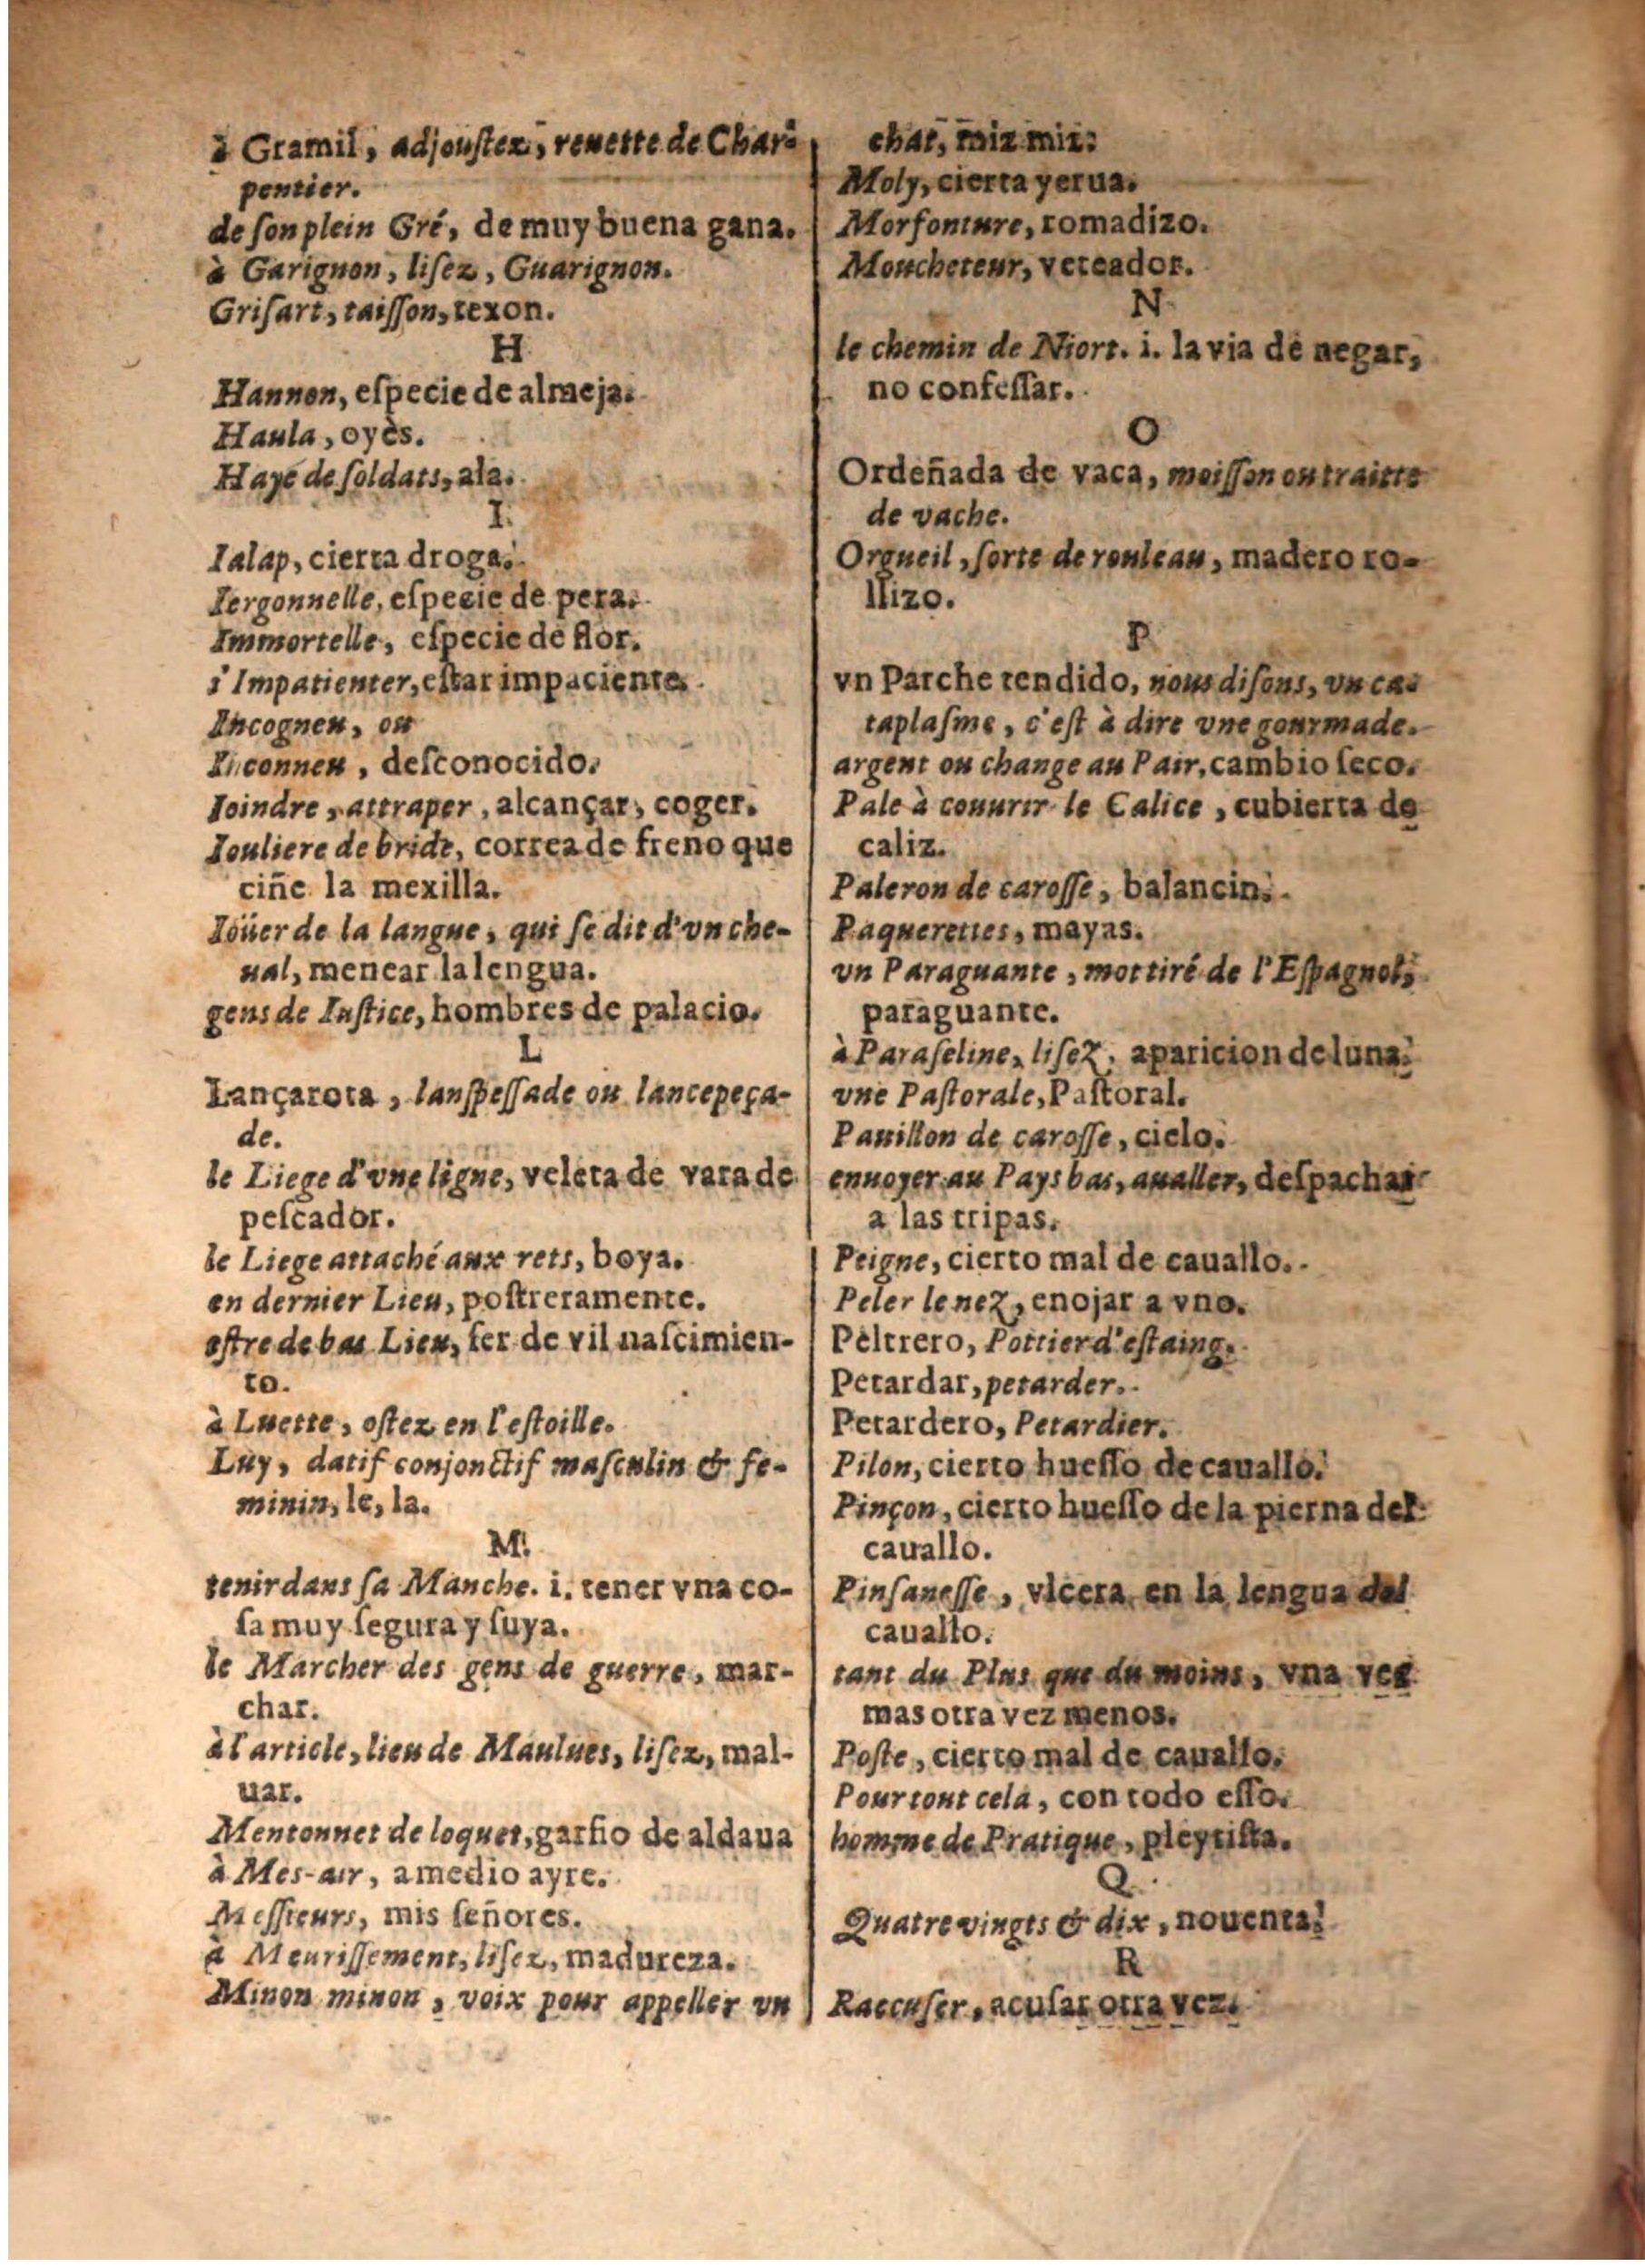 à Gramil, adjouſtez, reuette de Char-
pentier.
de ſon plein Gré, de muy buena gana.
à Garignon, liſez, Guarignon.
Griſart, taiſſon, texon.
H
Hannon, eſpecie de almeja.
Haula, oyès.
Haye de ſoldats, ala.
I
Ialap, cierta droga.
Iergonnelle, eſpecie de pera.
Immortelle, eſpecie de flor.
s'Impatienter, eſtar impaciente.
Incogneu, ou
Inconneu, deſconocido.
Ioindre, attraper, alcançar, coger.
Iouliere de bride, correa de freno que
ciñe la mexilla.
Ioüer de la langue, qui ſe dit d'vn che-
ual, menear la lengua.
gens de Iuſtice, hombres de palacio.
L
Lançarota, lanſpeſſade ou lancepeça-
de.
le Liege d'vne ligne, veleta de vara de
peſcador.
le Liege attaché aux rets, boya.
en dernier Lieu, poſtreramente.
eſtre de bas Lieu, ſer de vil naſcimien-
to.
à Luette, oſtez en l'eſtoille.
Luy, datif conjonctif maſculin & fe-
minin, le, la.
M
tenir dans ſa Manche. i. tener vna co-
ſa muy ſegura y ſuya.
le Marcher des gens de guerre, mar-
char.
à l'article, lieu de Maulues, liſez, mal-
uar.
Mentonnet de loquet, garfio de aldaua
à Mes-air, a medio ayre.
Meſſieurs, mis ſeñores.
à Meuriſſement, liſez, madureza.
Minon minon, voix pour appeller vn
chat, miz miz.
Moly, cierta yerua.
Morfonture, romadizo.
Moucheteur, veteador.
N
le chemin de Niort. i. la via de negar,
no confeſſar.
O
Ordeñada de vaca, moiſſon ou traitte
de vache.
Orgueil, ſorte de rouleau, madero ro-
llizo.
P
vn Parche tendido, nous diſons, vn ca-
taplaſme, c'eſt à dire vne gourmade.
argent ou change au Pair, cambio ſeco.
Pale à couurir le Calice, cubierta de
caliz.
Paleron de caroſſe, balancin.
Paquerettes, mayas.
vn Paraguante, mot tiré de l'Eſpagnol,
paraguante.
à Paraſeline, liſez, aparicion de luna.
vne Paſtorale, Paſtoral.
Pauillon de caroſſe, cielo.
enuoyer au Pays bas, aualler, deſpachar
a las tripas.
Peigne, cierto mal de cauallo.
Peler le nez, enojar a vno.
Peltrero, Pottier d'eſtaing.
Petardar, petarder.
Petardero, Petardier.
Pilon, cierto hueſſo de cauallo.
Pinçon, cierto hueſſo de la pierna del
cauallo.
Pinſaneſſe, vlcera en la lengua del
cauallo.
tant du Plus que du moins, vna vez
mas otra vez menos.
Poſte, cierto mal de cauallo.
Pour tout cela, con todo eſſo.
homme de Pratique, pleytiſta.
Q
Quatre vingts & dix, nouenta.
R
Raccuſer, acuſar otra vez.